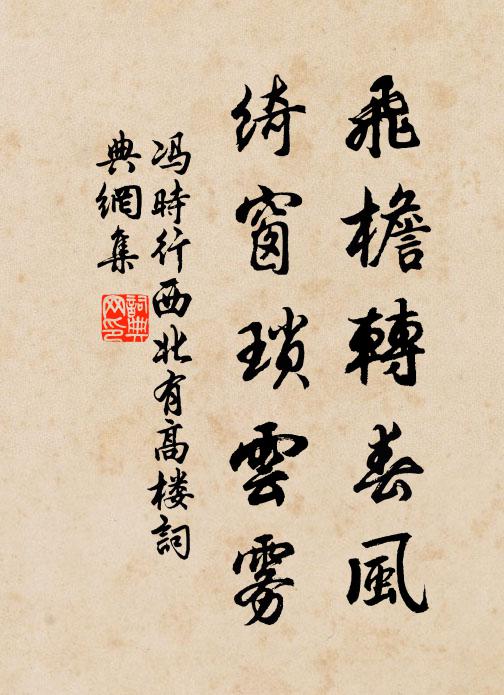 飛檐轉春風
綺窗瑣雲雾
冯時行西北有高楼詞
典網集
詞典网印